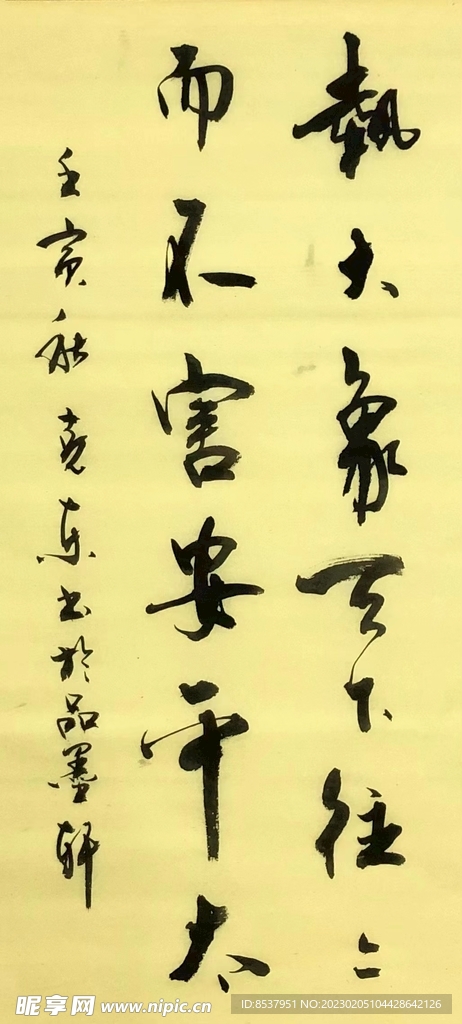 執大象天下往〻
而不害安平太
壬寅秋堯東书於品墨軒
昵享网 www.nipic.cn
ID:8537951 NO:20230205104428642126